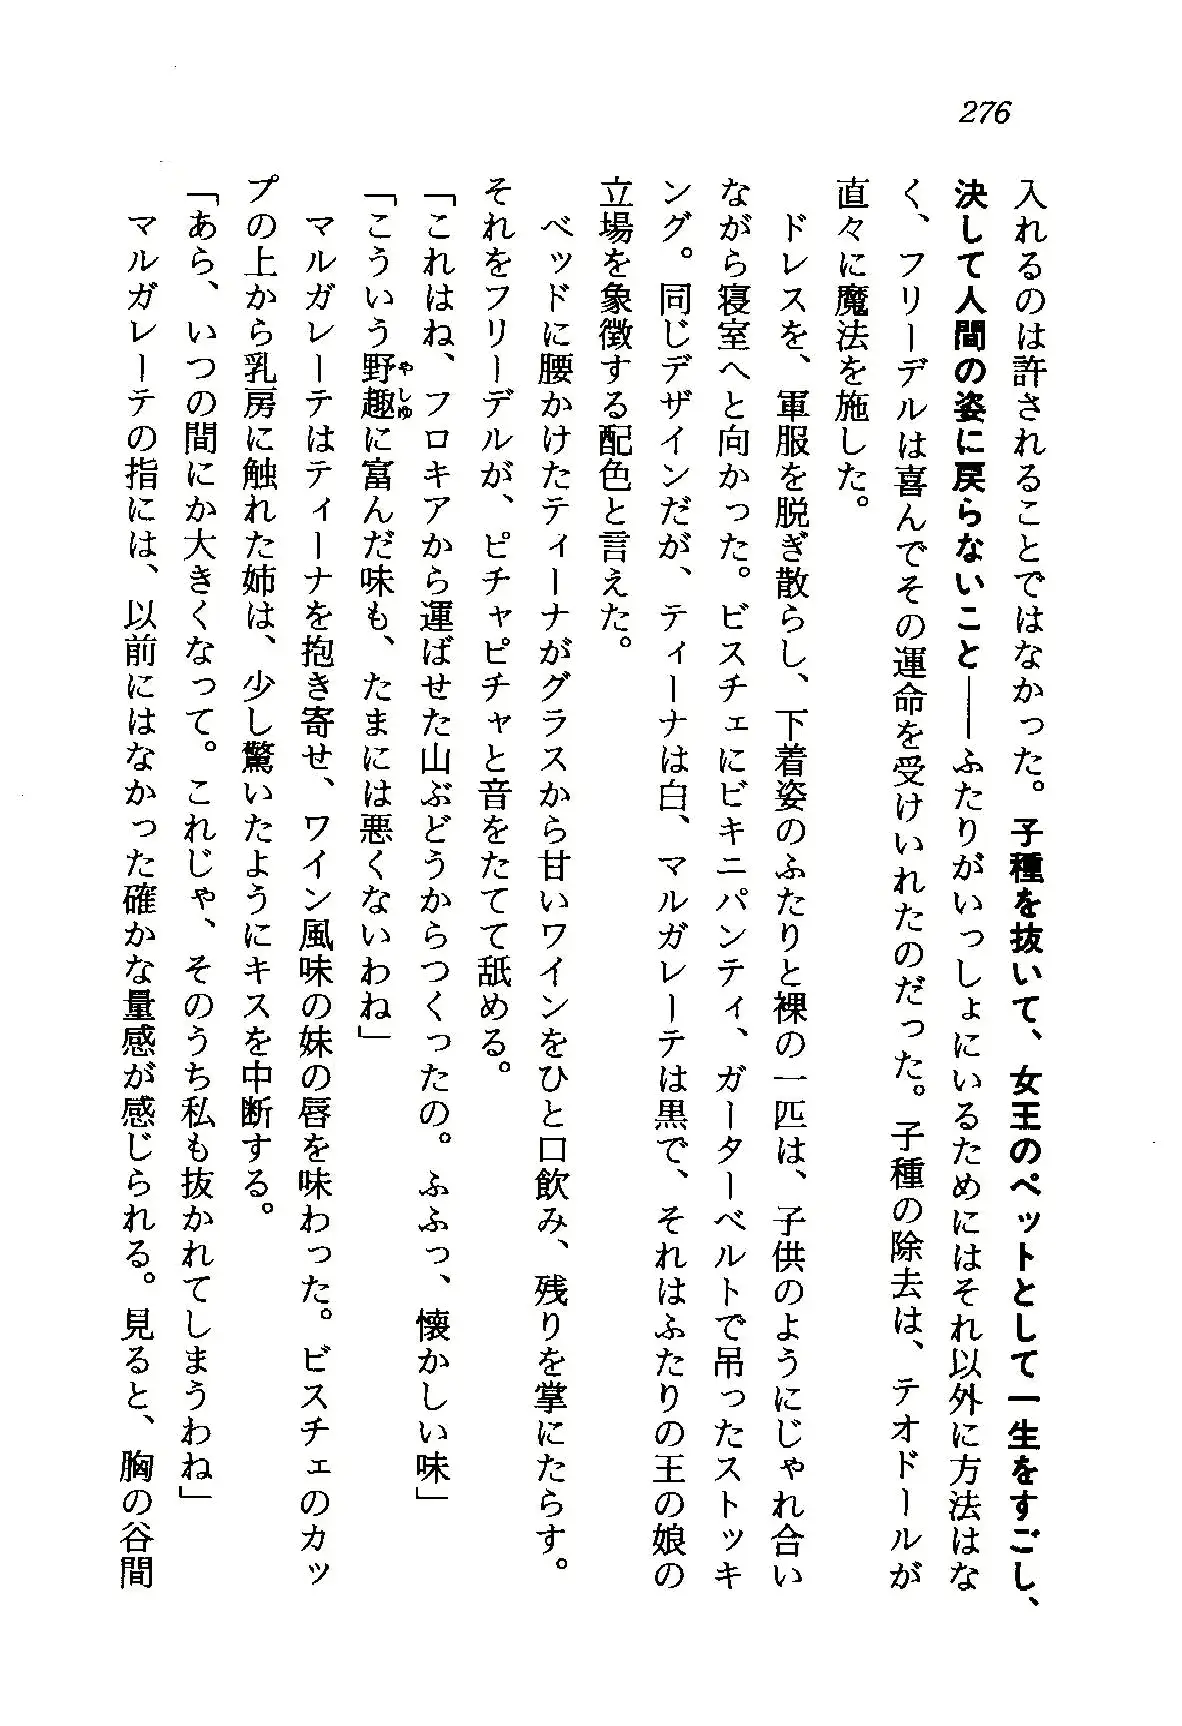 276
入れるのは許されることではなかった。子種を抜いて、女王のペットとして一生をすごし、
決して人間の姿に戻らないこと――ふたりがいっしょにいるためにはそれ以外に方法はな
く、フリーデルは喜んでその運命を受けいれたのだった。子種の除去は、テオドールが
直々に魔法を施した。
　ドレスを、軍服を脱ぎ散らし、下着姿のふたりと裸の一匹は、子供のようにじゃれ合い
ながら寝室へと向かった。ビスチェにビキニパンティ、ガーターベルトで吊ったストッキ
ング。同じデザインだが、ティーナは白、マルガレーテは黒で、それはふたりの王の娘の
立場を象徴する配色と言えた。
　ベッドに腰かけたティーナがグラスから甘いワインをひと口飲み、残りを掌にたらす。
それをフリーデルが、ピチャピチャと音をたてて舐める。
「これはね、フロキアから運ばせた山ぶどうからつくったの。ふふっ、懐かしい味」
「こういう野趣やしゅに富んだ味も、たまには悪くないわね」
　マルガレーテはティーナを抱き寄せ、ワイン風味の妹の唇を味わった。ビスチェのカッ
プの上から乳房に触れた姉は、少し驚いたようにキスを中断する。
「あら、いつの間にか大きくなって。これじゃ、そのうち私も抜かれてしまうわね」
　マルガレーテの指には、以前にはなかった確かな量感が感じられる。見ると、胸の谷間